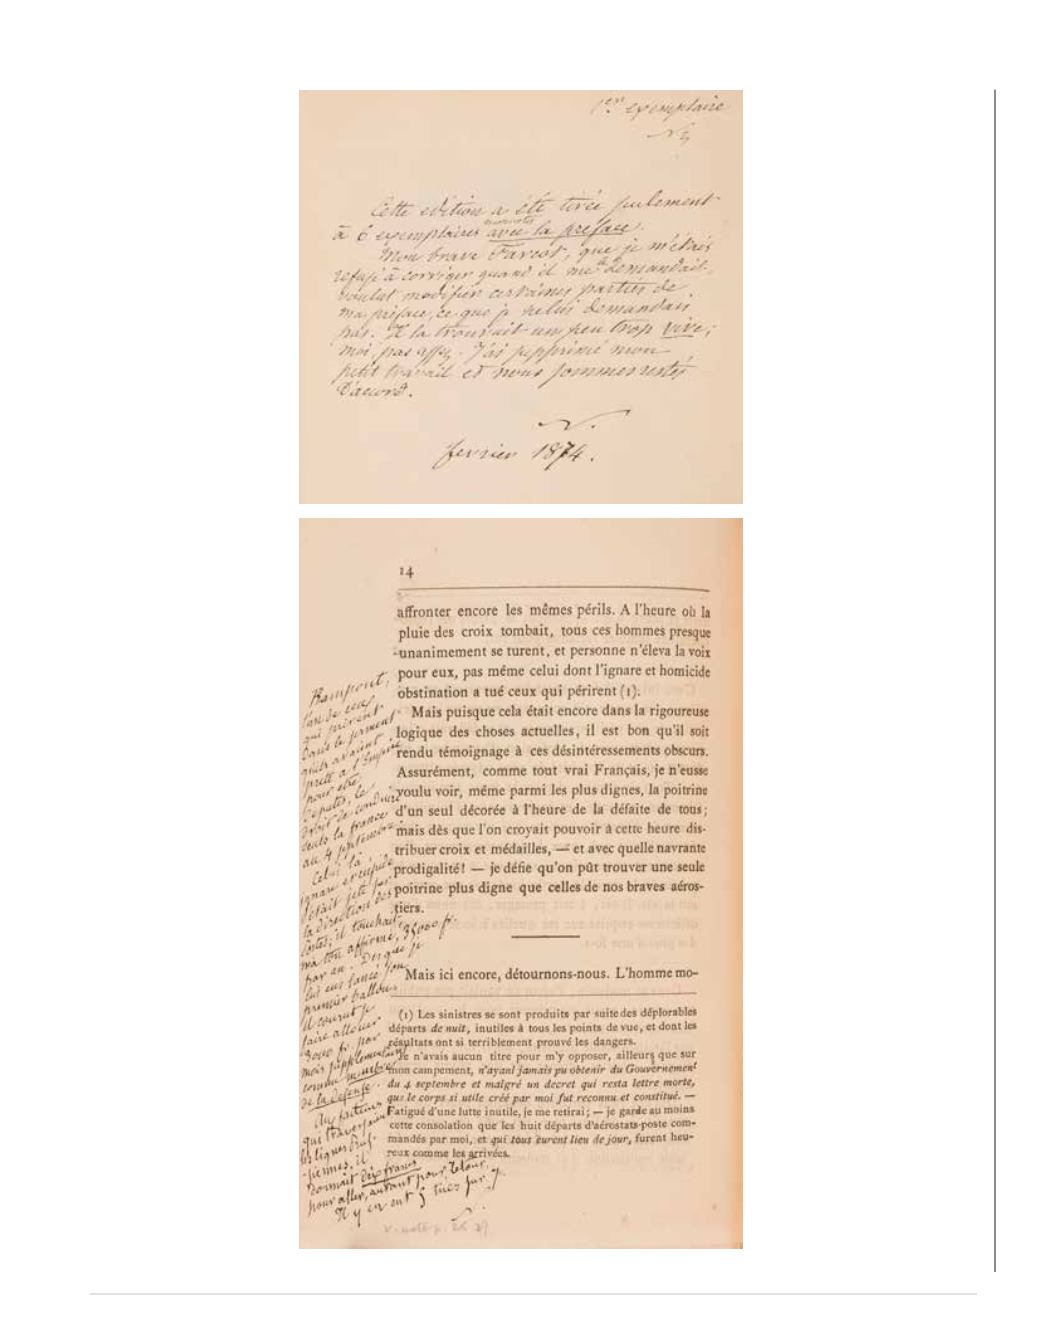 1er exemplaire
N
Cette edition a été tirée seulement
à 6 exemplaires avec la preface.
Mon brave Farcot, que je m'étais
refusé à corriger quand il me le demandait,
voulut modifier certaines parties de
ma préface, ce que je ne lui demandais
pas. Il la trouvait un peu trop vive;
moi, pas assez. J'ai supprimé mon
petit travail et nous sommes restés
D'acord.
N.
fevrier 1874.
14
affronter encore les mêmes périls. A l'heure où la
pluie des croix tombait, tous ces hommes presque
unanimement se turent, et personne n'éleva la voix
pour eux, pas même celui dont l'ignare et homicide
obstination a tué ceux qui périrent (1).
Mais puisque cela était encore dans la rigoureuse
logique des choses actuelles, il est bon qu'il soit
rendu témoignage à ces désintéressements obscurs.
Assurément, comme tout vrai Français, je n'eusse
voulu voir, même parmi les plus dignes, la poitrine
d'un seul décorée à l'heure de la défaite de tous;
mais dès que l'on croyait pouvoir à cette heure dis-
tribuer croix et médailles, — et avec quelle navrante
prodigalité! — je défie qu'on pût trouver une seule
poitrine plus digne que celles de nos braves aéros-
tiers.
Mais ici encore, détournons-nous. L'homme mo-
(1) Les sinistres se sont produits par suite des déplorables
départs de nuit, inutiles à tous les points de vue, et dont les
résultats ont si terriblement prouvé les dangers.
Je n'avais aucun titre pour m'y opposer, ailleurs que sur
mon campement, n'ayant jamais pu obtenir du Gouvernement
du 4 septembre et malgré un decret qui resta lettre morte,
que le corps si utile créé par moi fut reconnu et constitué. —
Fatigué d'une lutte inutile, je me retirai; — je garde au moins
cette consolation que les huit départs d'aérostats-poste com-
mandés par moi, et qui tous eurent lieu de jour, furent heu-
reux comme les arrivées.
Rampont,
l'un de ceux
qui prirent
Dans le serment
qu'ils avaient
prêté à l'Empire
pour être
Députés, le
Droit de conduire
seuls la france
au 4 septembre.
Celui là
ignare et cupide
s'était jeté sur
la direction des
Postes; il touchait,
m'a t'on affirmé, 35000 fr.
par an. Dès que je
lui eus lancé son
premier ballon
il courut se
faire allouer
3000 fr. par
mois supplémentaires
comme membre
de la défense.
Aux facteurs
qui traversaient
les lignes Prus-
siennes, il
Donnait dix francs
pour aller, autant pour retour.
Il y en eut 5 tués sur 7
N
v. note p. 26 27